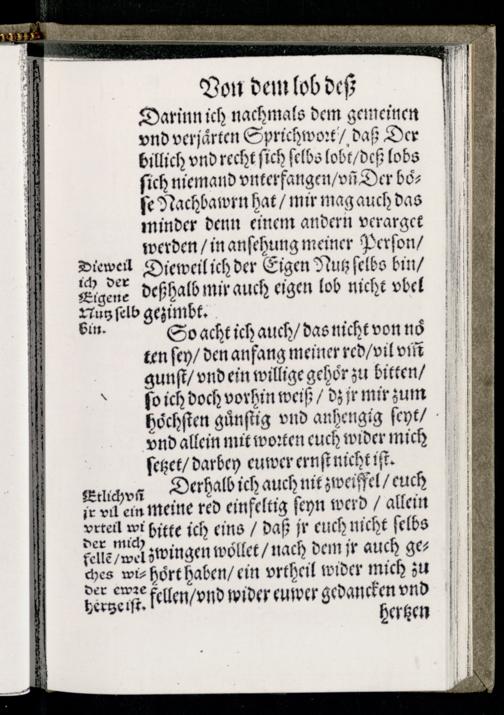 Von dem lob deß
Darinn ich nachmals dem gemeinen
vnd verjärten Sprichwort / daß Der
billich vnd recht sich selbs lobt / deß lobs
sich niemand vnterfangen / vñ Der bö-
se Nachbawrn hat / mir mag auch das
minder denn einem andern verarget
werden / in ansehung meiner Person /
Dieweil ich der Eigen Nutz selbs bin /
deßhalb mir auch eigen lob nicht vbel
gezimbt.
Dieweil
ich der
Eigene
Nutz selb
bin.
So acht ich auch / das nicht von nö
ten sey / den anfang meiner red / vil vm̃
gunst / vnd ein willige gehör zu bitten /
so ich doch vorhin weiß / dz jr mir zum
höchsten günstig vnd anhengig seyt /
vnd allein mit worten euch wider mich
setzet / darbey euwer ernst nicht ist.
Derhalb ich auch nit zweiffel / euch
meine red einfeltig seyn werd / allein
bitte ich eins / daß jr euch nicht selbs
zwingen wöllet / nach dem jr auch ge-
hört haben / ein vrtheil wider mich zu
fellen / vnd wider euwer gedancken vnd
hertzen
Etlich vñ
jr vil ein
vrteil wi
der mich
fellē / wel
ches wi-
der ewre
hertze ist.